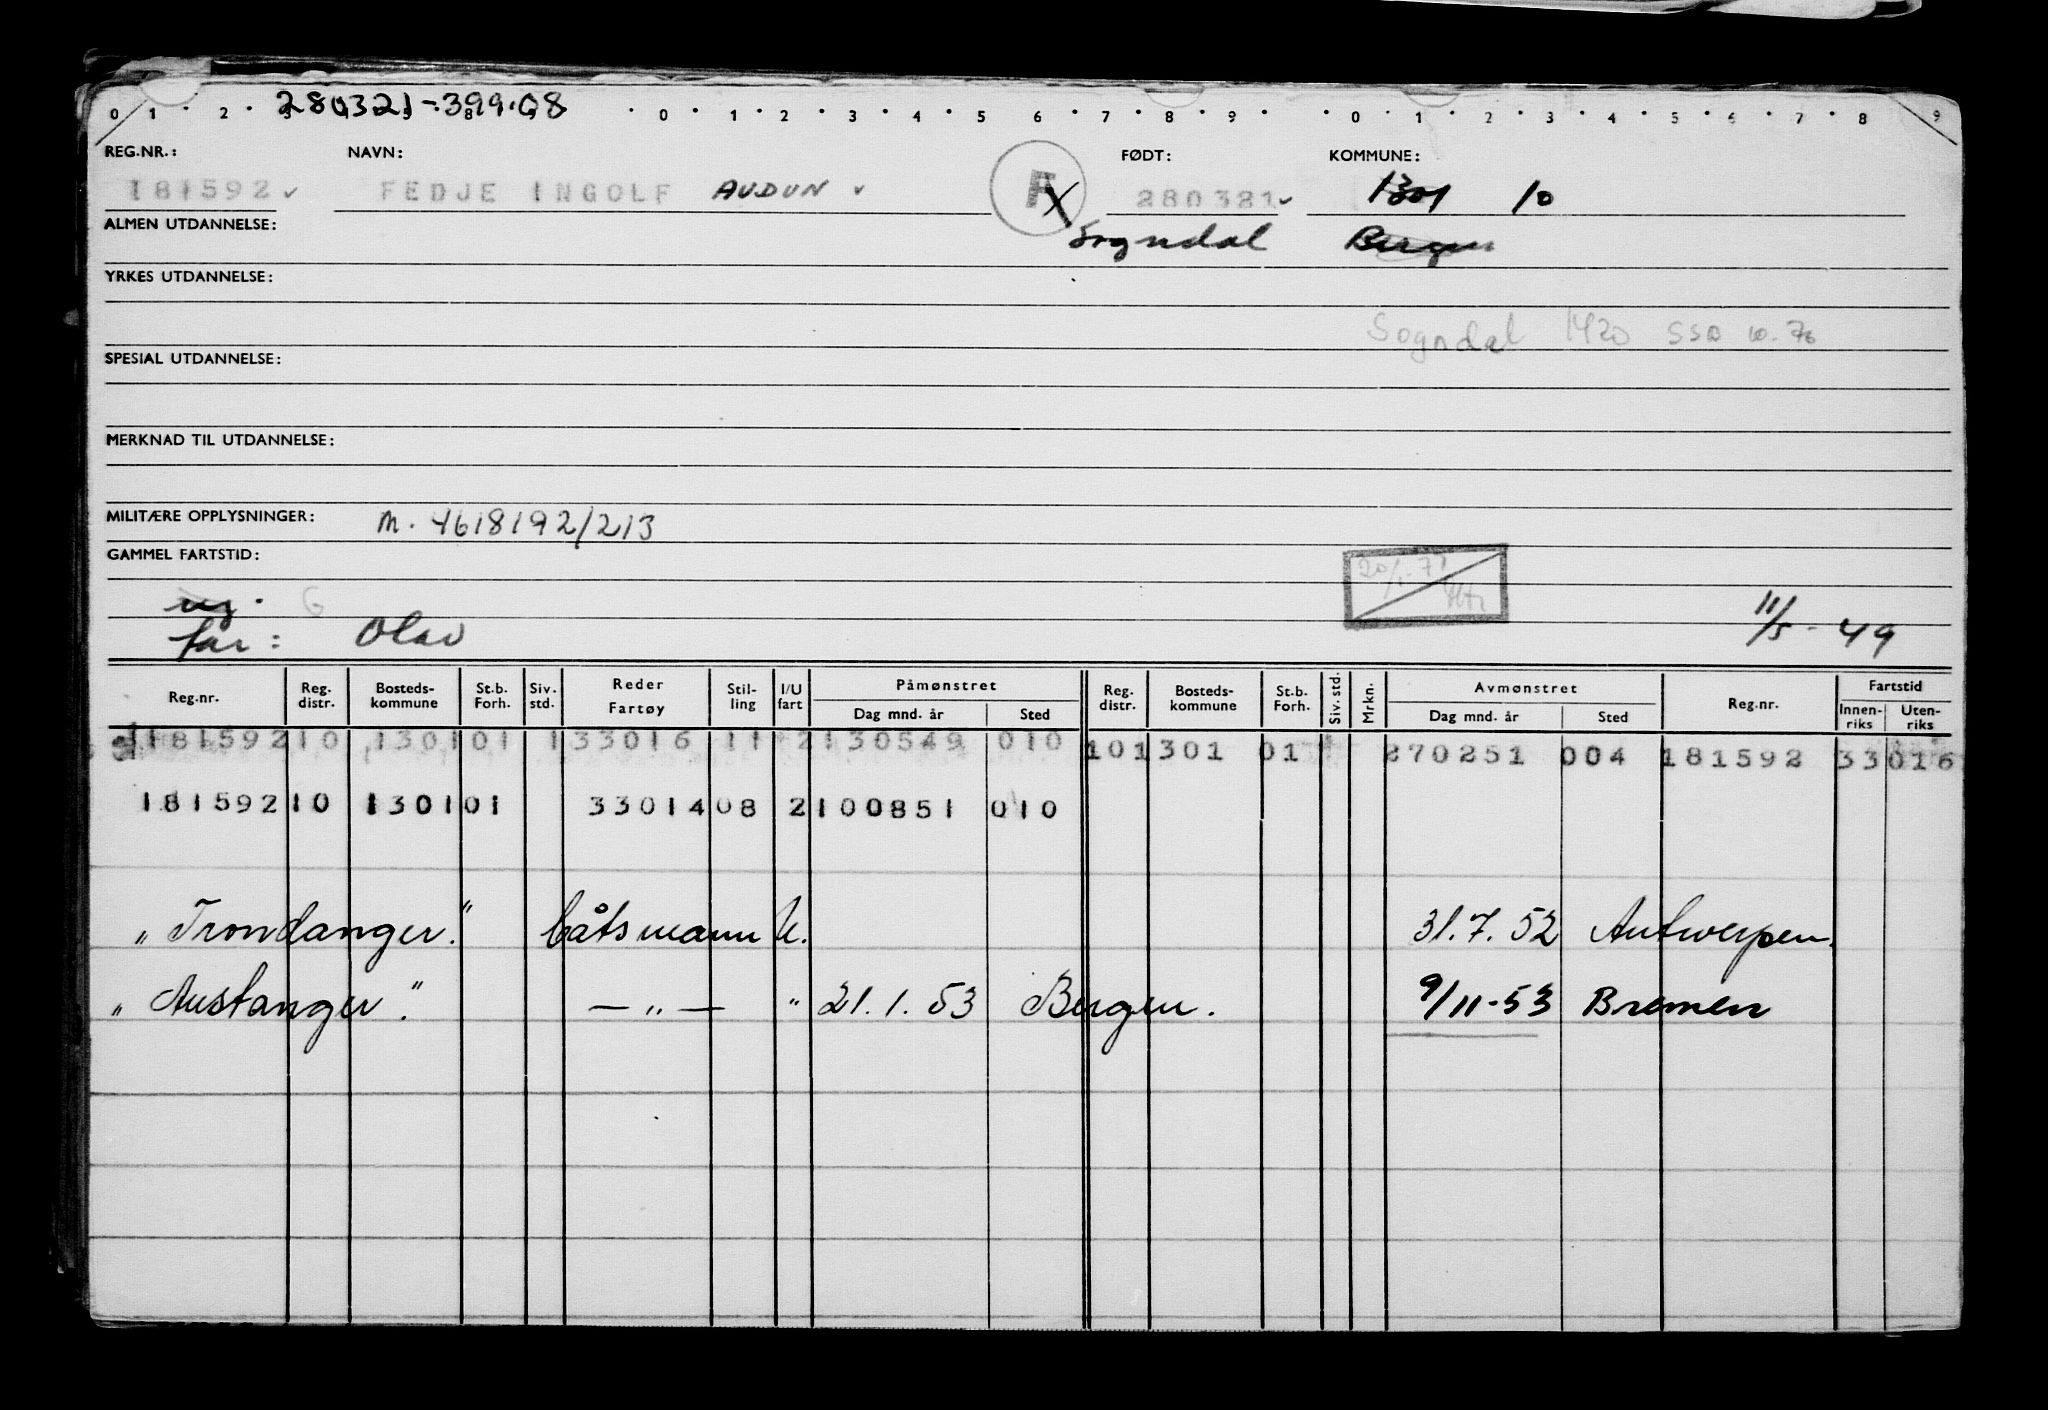 280321-399.08
0 1 2 0 1 2 3 4 5 6 7 8 9 0 1 2 3 4 5 6 7 8 9
REG.NR.: NAVN: FØDT: KOMMUNE:
181592 FEDJE INGOLF AUDUN F 280321 1301 10
ALMEN UTDANNELSE: Sogndal Bergen
YRKES UTDANNELSE:
Sogndal 1420 SSD 10.76
SPESIAL UTDANNELSE:
MERKNAD TIL UTDANNELSE:
MILITÆRE OPPLYSNINGER: M. 4618192/213
GAMMEL FARTSTID:
ug. G
far: Olav 11/5-49
Reg.nr. Reg. distr. Bosteds-kommune St.b. Forh. Siv. std. Reder Fartøy Stil-ling I/U fart Påmønstret Dag mnd. år Sted Reg. distr. Bosteds-kommune St.b. Forh. Siv. std. Mrkn. Avmønstret Dag mnd. år Sted Reg.nr. Fartstid Innen-riks Uten-riks
181592 10 1301 01 1 33016 11 2 130549 010 10 1301 01 270251 004 181592 33016
181592 10 1301 01 33014 08 2 100851 010
"Trondanger." båtsmann U. 31.7.52 Antwerpen.
"Austanger." — " — " 21.1.53 Bergen. 9/11-53 Bremen